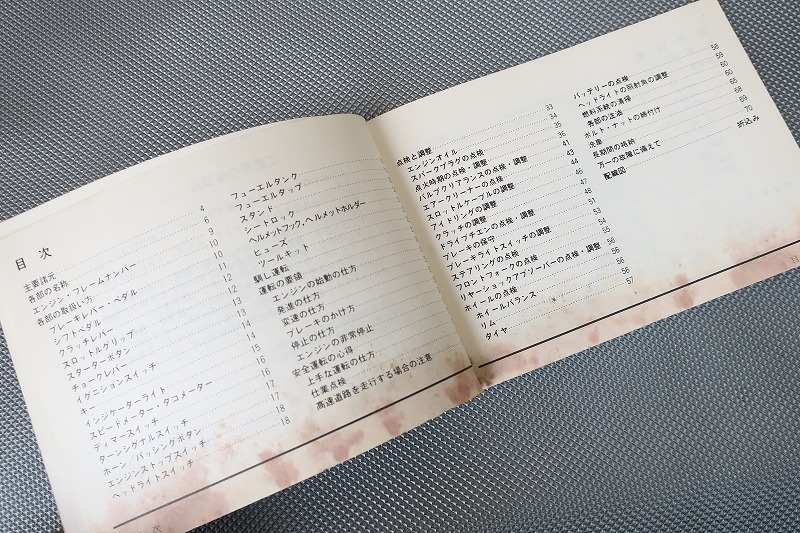 目 次
主要諸元 4
各部の名称 6
エンジン・フレームナンバー 9
各部の取扱い方 10
ブレーキレバー・ペダル 10
シフトペダル 11
クラッチレバー 12
スロットルグリップ 12
スターターボタン 13
チョークレバー 13
イグニションスイッチ 14
キー 15
インジケーターライト 16
スピードメーター・タコメーター 16
ディマースイッチ 17
ターンシグナルスイッチ 17
ホーン/パッシングボタン 18
エンジンストップスイッチ 18
ヘッドライトスイッチ
フューエルタンク
フューエルタップ
スタンド
シートロック
ヘルメットフック・ヘルメットホルダー
ヒューズ
ツールキット
馴し運転
運転の要領
エンジンの始動の仕方
発進の仕方
変速の仕方
ブレーキのかけ方
停止の仕方
エンジンの非常停止
安全運転の心得
上手な運転の仕方
仕業点検
高速道路を走行する場合の注意
点検と調整 33
エンジンオイル 34
スパークプラグの点検 35
点火時期の点検・調整 36
バルブクリアランスの点検・調整 41
エアークリーナーの点検 43
スロットルケーブルの調整 44
アイドリングの調整 46
クラッチの調整 47
ドライブチエンの点検・調整 48
ブレーキの保守 51
ブレーキライトスイッチの調整 53
ステアリングの点検 54
フロントフォークの点検 55
リヤーショックアブソーバーの点検・調整 56
ホイールの点検 56
ホイールバランス 56
リム 56
タイヤ 57
バッテリーの点検 58
ヘッドライトの照射角の調整 59
燃料系統の清掃 60
各部の注油 60
ボルト・ナットの締付け 65
洗車 68
長期間の格納 69
万一の故障に備えて 70
配線図 折込み
次